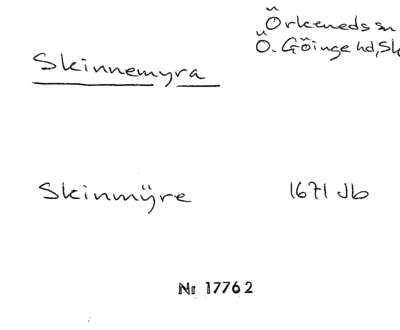 Örkeneds sn
Ö. Göinge hd, Sk
Skinnemyra
Skinmÿre 1671 Jb
Nr 17762